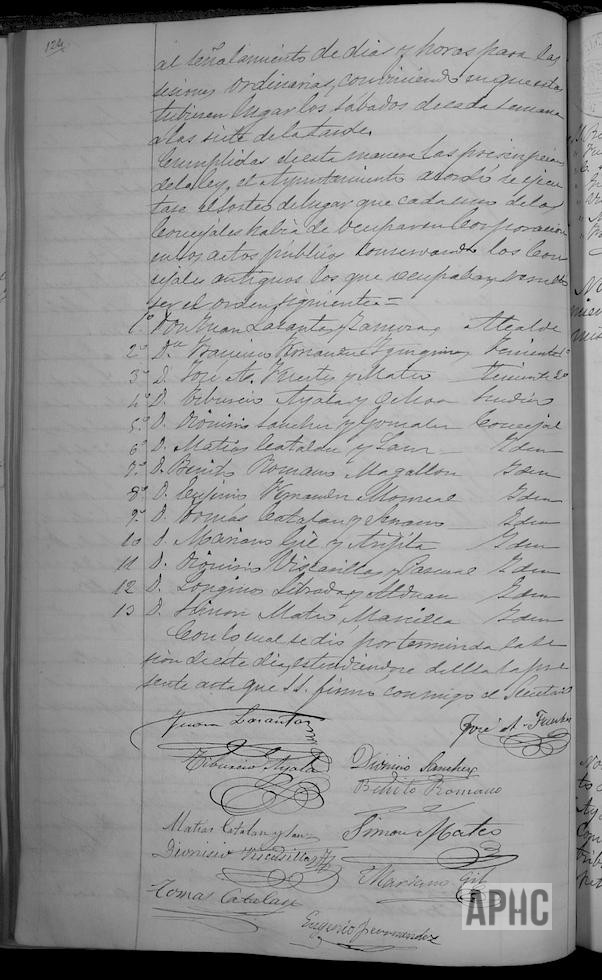 124
al señalamiento de dias y horas para las
sesiones ordinarias, conviniendo en que estas
tubiesen lugar los sábados de cada semana
a las siete de la tarde.
Cumplidas de esta manera las prescripciones
de la ley, el Ayuntamiento acordó se ejecu-
tase el sorteo de lugar que cada uno de los
Concejales habia de ocupar en Corporacion
en los actos públicos conservando los Con-
cejales antiguos los que ocupaban y resultó
ser el orden siguiente =
1º Don Juan Lacanta y Zamora Alcalde
2º D. Francisco Hernandez Teniente 1º
3º D. José A. Fuertes y Mateo Teniente 2º
4º D. Tiburcio Ayala y Síndico
5º D. Dionisio Sanchez y Gonzalez Concejal
6º D. Matias Catalan y Sanz Idem
7º D. Benito Romano Magallon Idem
8º D. Eugenio Fernandez Monreal Idem
9º D. Tomás Catalan y Idem
10 D. Mariano Gil y Idem
11 D. Dionisio Viscasillas y Pascual Idem
12 D. Longinos Idem
13 D. Simon Mateo Idem
Con lo cual se dió por terminda la se-
sion de este dia, estendiendose de ella la pre-
sente acta que SS. firma conmigo el Secretario
Juan Lacanta
José A. Fuertes
Tiburcio Ayala
Dionisio Sanchez
Benito Romano
Matias Catalan y Sanz
Simon Mateo
Dionisio Viscasillas
Mariano Gil
Tomas Catalan
Eugenio Fernandez
APHC